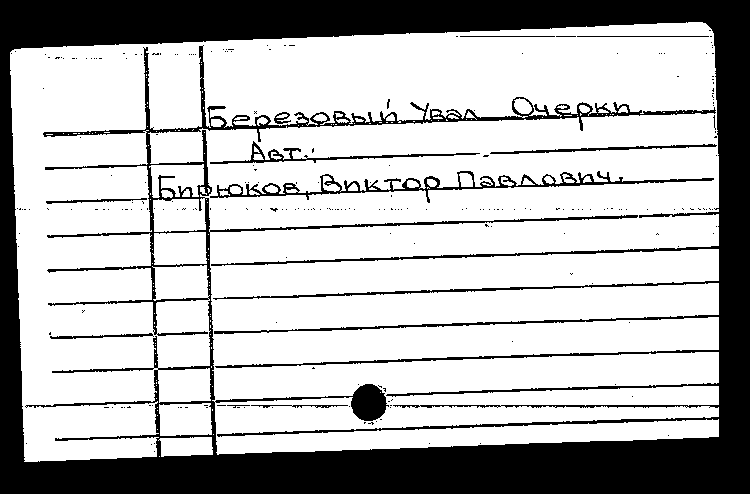 Березовый Увал Очерки
Авт.:
Бирюков, Виктор Павлович.